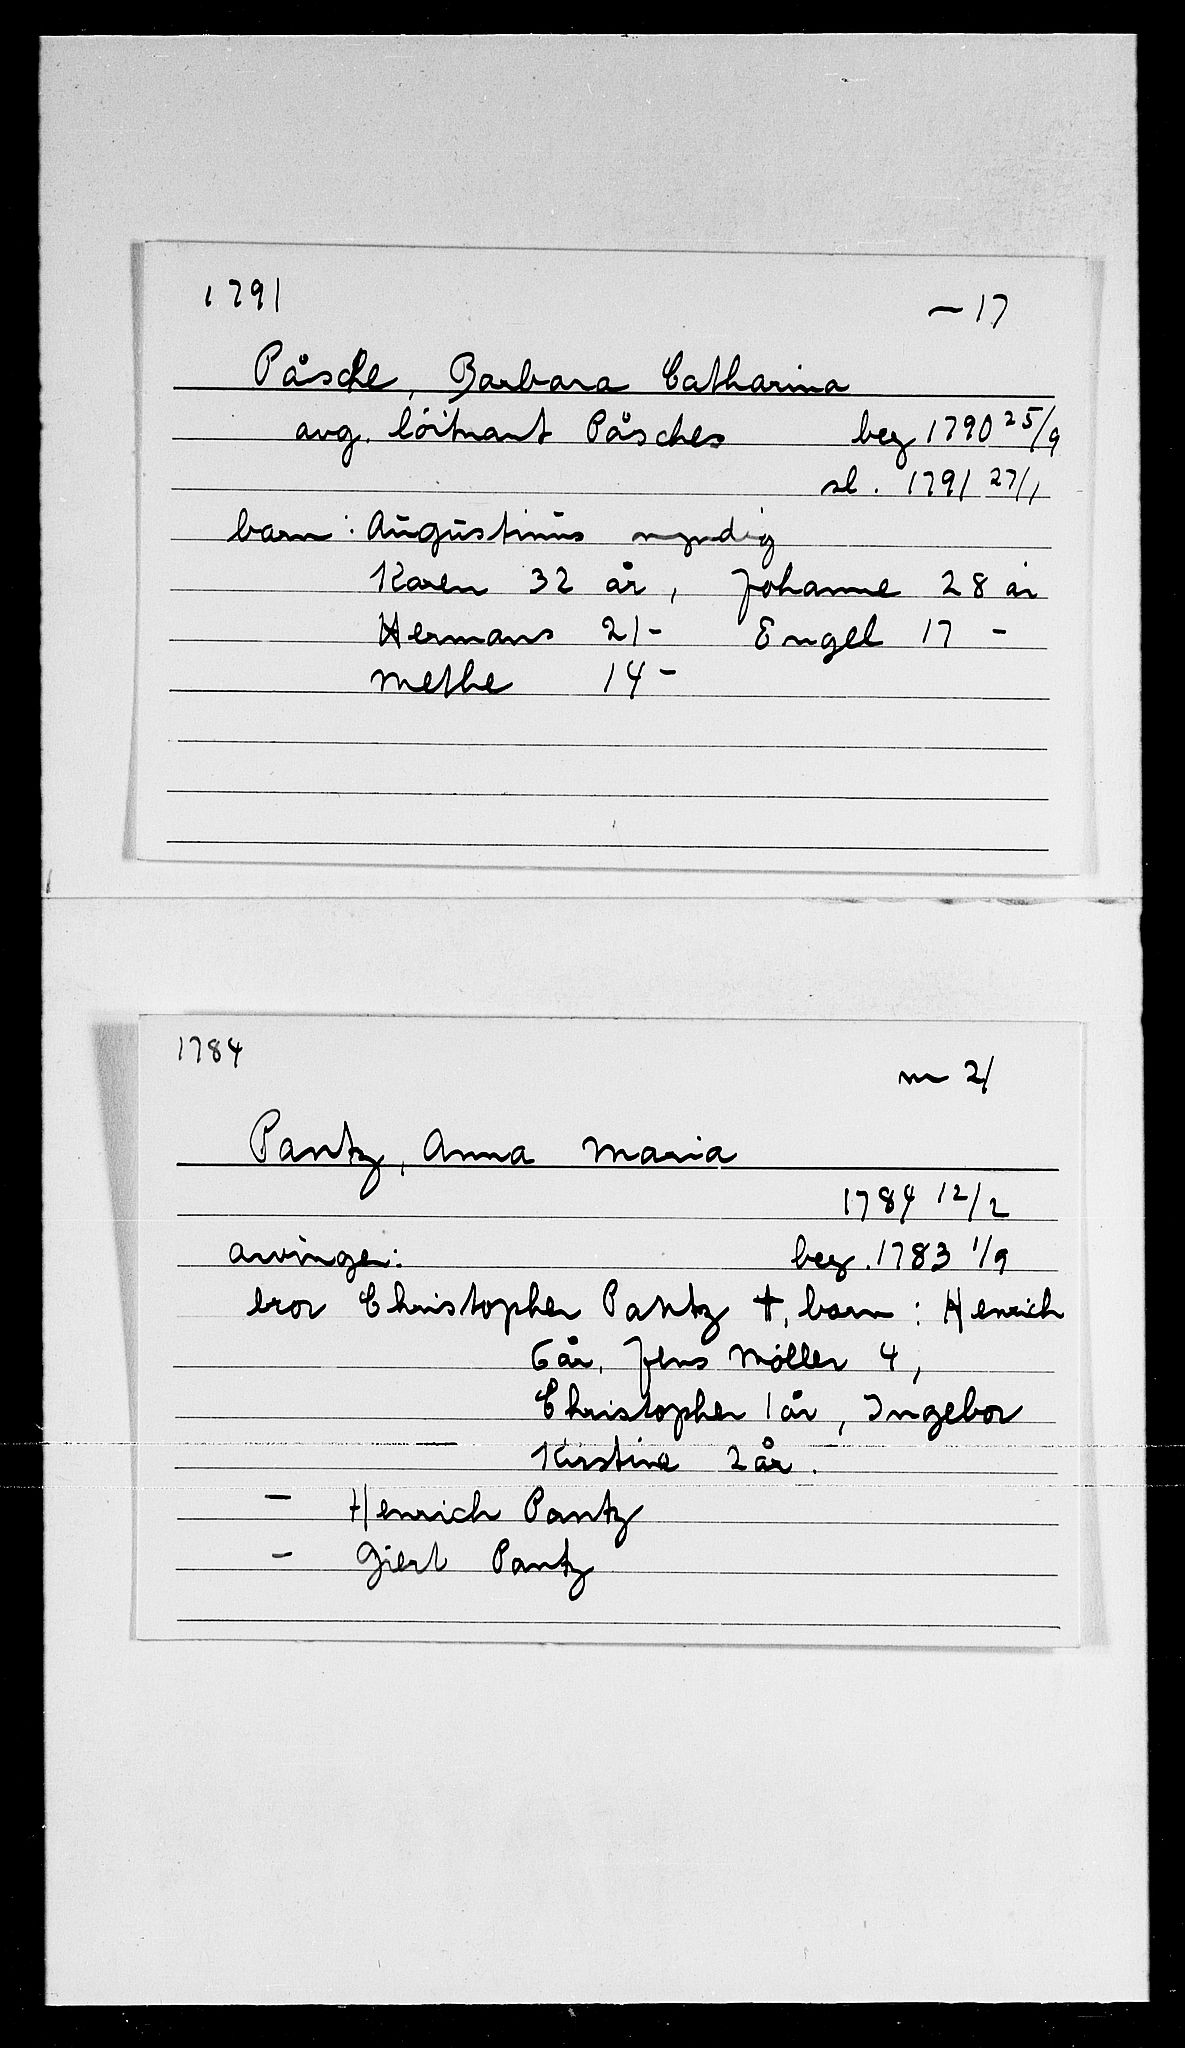 1791
– 17
Påsche, Barbara Catharina
avg. löitnant Påsches beg 1790 25/9
sl. 1791 27/1
barn: Augustinus myndig
Karen 32 år, Johanne 28 år
Hermans 21 – Engel 17 –
Methe 14 –
1784
m 21
Pantz, Anna Maria
1784 12/2
arvinger: beg. 1783 1/9
bror Christopher Pantz †, barn: Henrich
6 år, Jens Møller 4,
Christopher 1 år, Ingebor
Kirstine 2 år.
– Henrich Pantz
– Giert Pantz